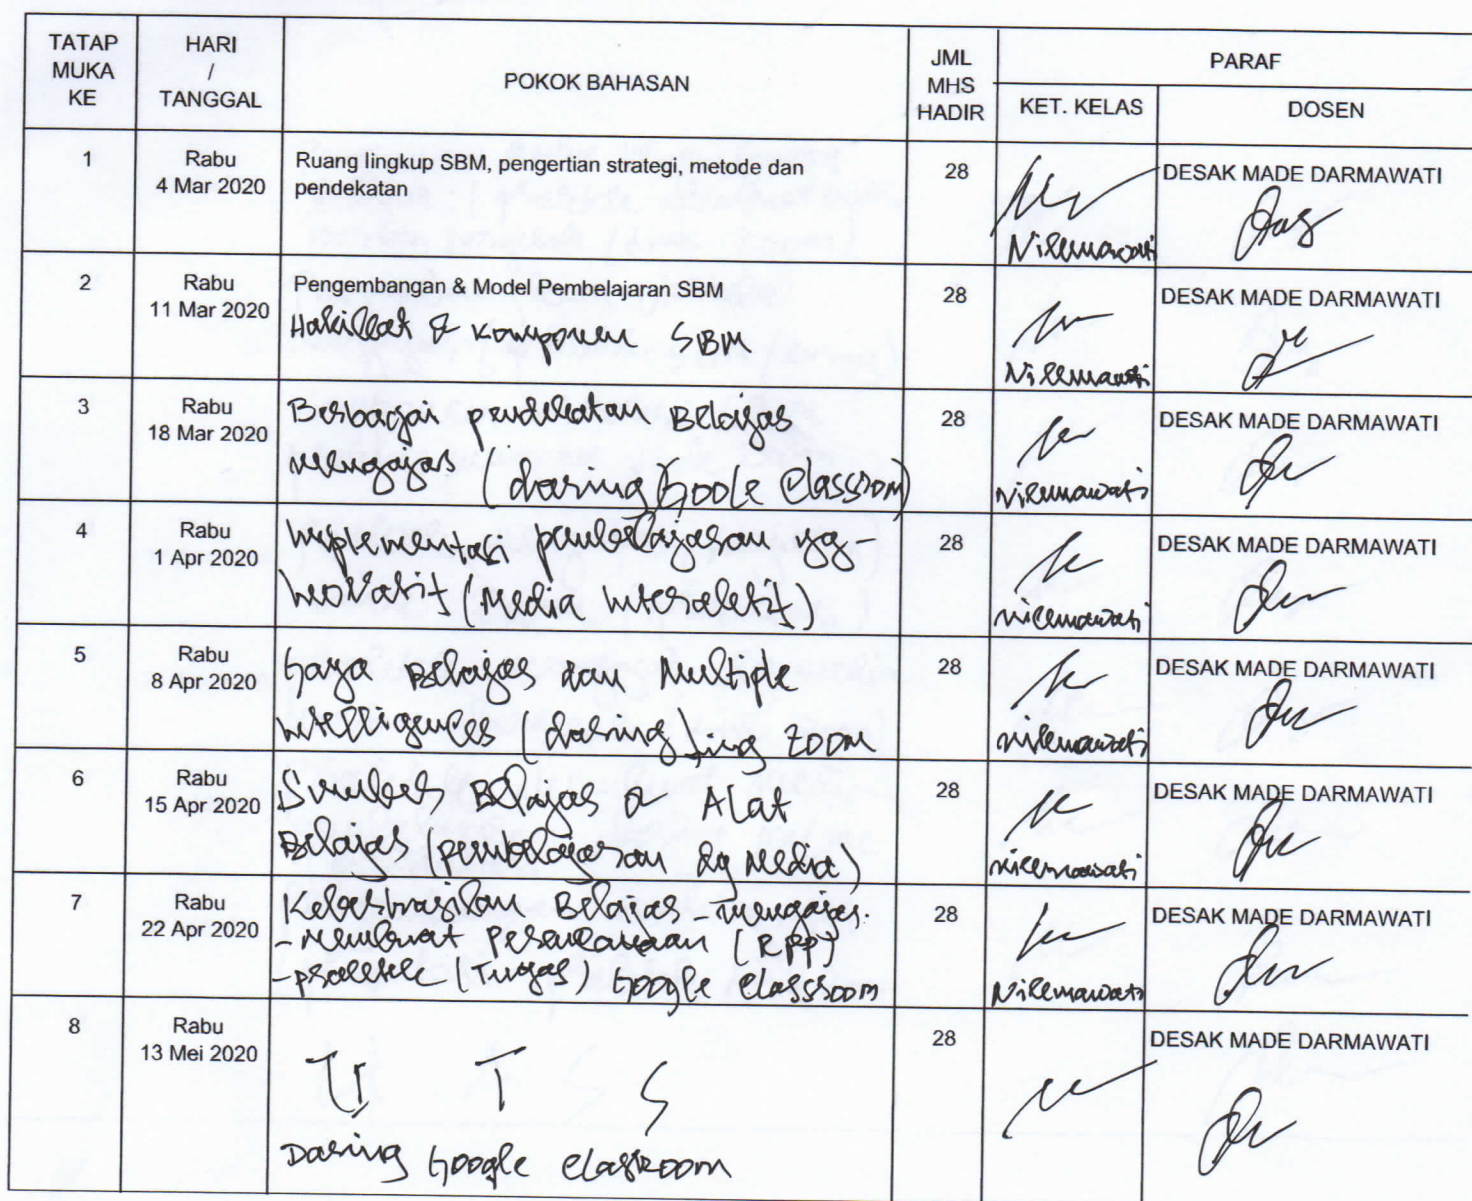 TATAP MUKA KE
HARI / TANGGAL
POKOK BAHASAN
JML MHS HADIR
PARAF
KET. KELAS
DOSEN
1
Rabu
4 Mar 2020
Ruang lingkup SBM, pengertian strategi, metode dan
pendekatan
28
Nilemawati
DESAK MADE DARMAWATI
2
Rabu
11 Mar 2020
Pengembangan & Model Pembelajaran SBM
Hakikat & Komponen SBM
28
Nilemawati
DESAK MADE DARMAWATI
3
Rabu
18 Mar 2020
Berbagai pendekatan Belajar
mengajar (daring Goole Classroom)
28
Nilemawati
DESAK MADE DARMAWATI
4
Rabu
1 Apr 2020
Implementasi pembelajaran yg
Inovatif (Media Interaktif)
28
nilemawati
DESAK MADE DARMAWATI
5
Rabu
8 Apr 2020
Gaya Belajar dan Multiple
Intelligences (daring) ZOOM
28
nilemawati
DESAK MADE DARMAWATI
6
Rabu
15 Apr 2020
Sumber Belajar & Alat
Belajar (pembelajaran dg Media)
28
nilemawati
DESAK MADE DARMAWATI
7
Rabu
22 Apr 2020
Keberhasilan Belajar - mengajar.
- Membuat Perencanaan (RPP)
- praktek (Tugas) Google Classroom
28
Nilemawati
DESAK MADE DARMAWATI
8
Rabu
13 Mei 2020
U T S
Daring Google Classroom
28
DESAK MADE DARMAWATI